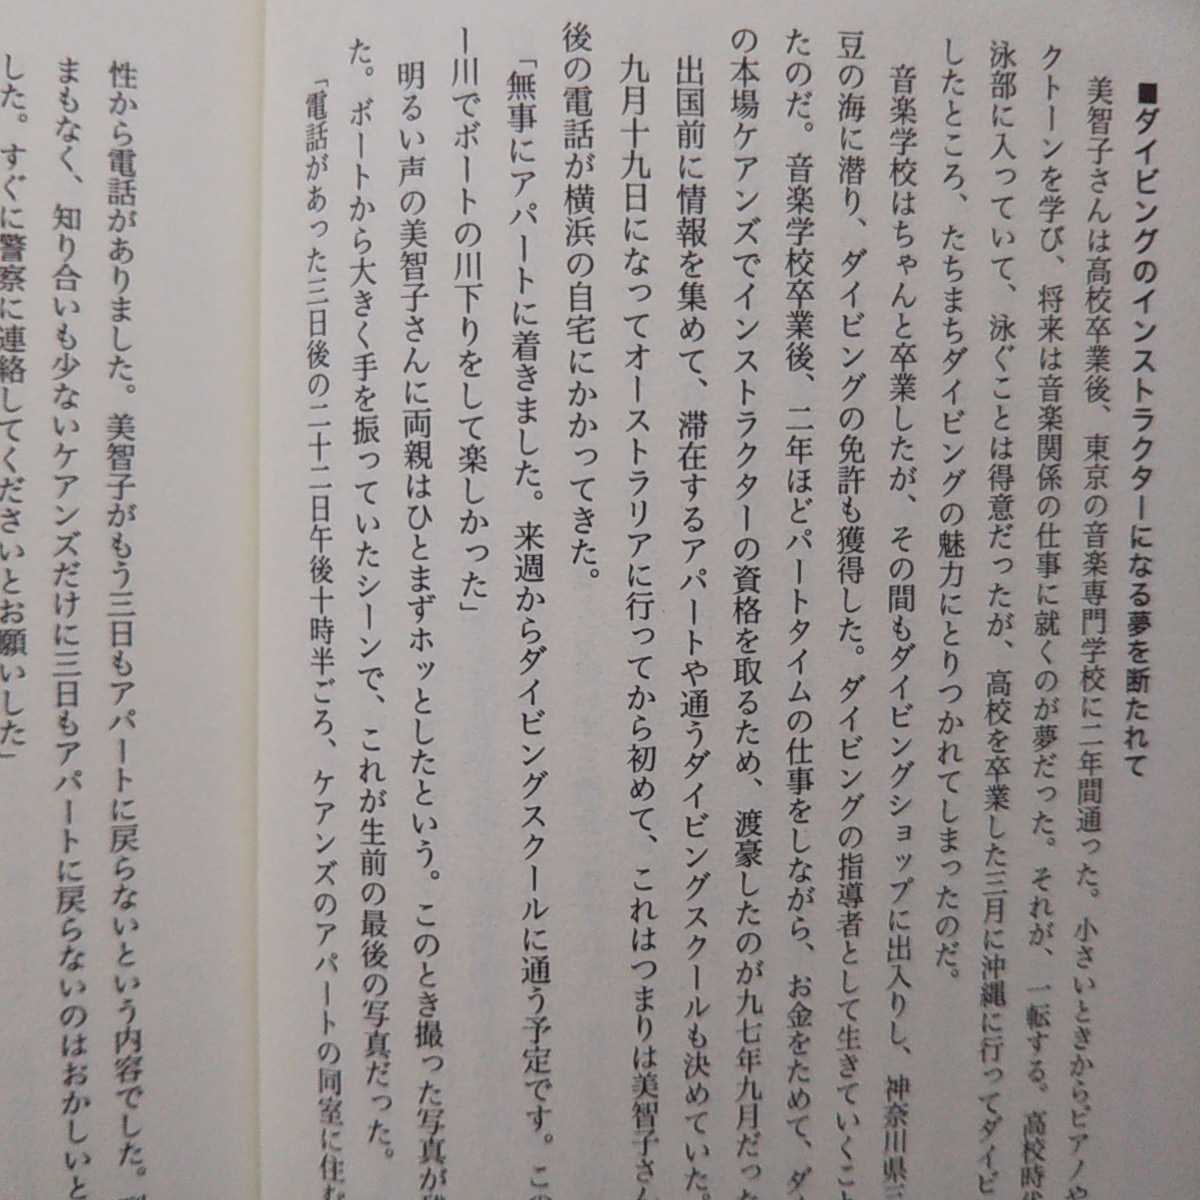 ■ダイビングのインストラクターになる夢を断たれて
美智子さんは高校卒業後、東京の音楽専門学校に二年間通った。小さいときからピアノや
クトーンを学び、将来は音楽関係の仕事に就くのが夢だった。それが、一転する。高校時代
泳部に入っていて、泳ぐことは得意だったが、高校を卒業した三月に沖縄に行ってダイビ
したところ、たちまちダイビングの魅力にとりつかれてしまったのだ。
音楽学校はちゃんと卒業したが、その間もダイビングショップに出入りし、神奈川県三
豆の海に潜り、ダイビングの免許も獲得した。ダイビングの指導者として生きていくこと
たのだ。音楽学校卒業後、二年ほどパートタイムの仕事をしながら、お金をためて、ダ
の本場ケアンズでインストラクターの資格を取るため、渡豪したのが九七年九月だった
出国前に情報を集めて、滞在するアパートや通うダイビングスクールも決めていた。
九月十九日になってオーストラリアに行ってから初めて、これはつまりは美智子さん
後の電話が横浜の自宅にかかってきた。
「無事にアパートに着きました。来週からダイビングスクールに通う予定です。この
ー川でボートの川下りをして楽しかった」
明るい声の美智子さんに両親はひとまずホッとしたという。このとき撮った写真が
た。ボートから大きく手を振っていたシーンで、これが生前の最後の写真だった。
「電話があった三日後の二十二日午後十時半ごろ、ケアンズのアパートの同室に住む
性から電話がありました。美智子がもう三日もアパートに戻らないという内容でした。
まもなく、知り合いも少ないケアンズだけに三日もアパートに戻らないのはおかしいと
した。すぐに警察に連絡してくださいとお願いした」